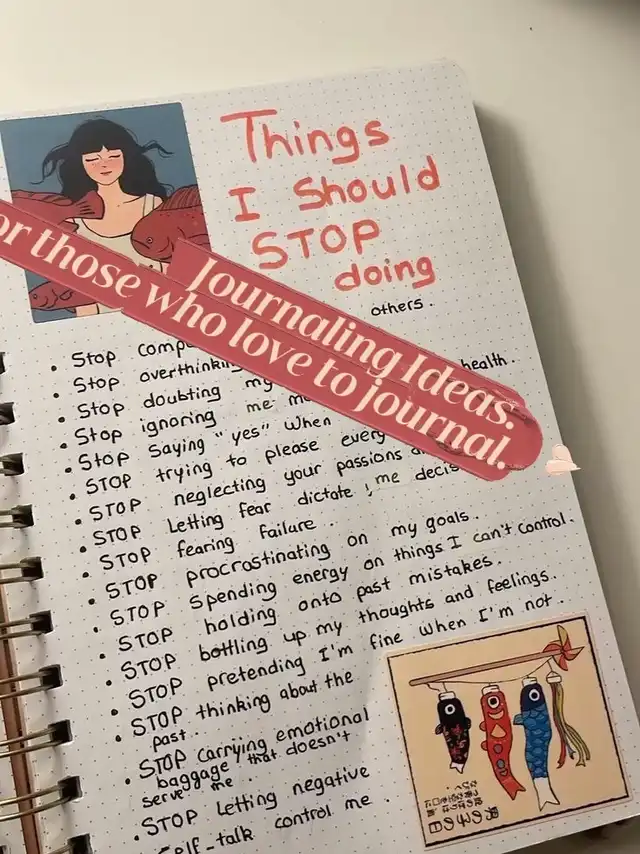 Things
I Should
STOP
doing
or those who love to journal.
Journaling Ideas.
others.
• Stop comp
• Stop overthinkin
• Stop doubting my
health.
• Stop ignoring me m
• Stop Saying "yes" When
• STOP trying to please every
• STOP neglecting your passions a
• STOP Letting fear dictate , me decis
• STOP fearing failure.
• STOP procrastinating on my goals.
• STOP Spending energy on things I can't control.
• STOP holding onto past mistakes.
• STOP bottling up my thoughts and feelings.
• STOP pretending I'm fine when I'm not.
• STOP thinking about the
past.
• STOP carrying emotional
baggage that doesn't
serve me
• STOP Letting negative
self-talk control me.